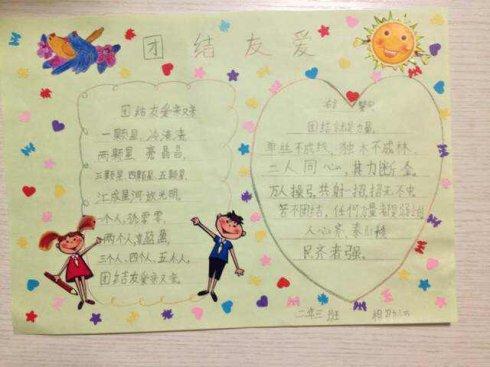 团结友爱
团结友爱亲又亲
一颗星,冷清清,
两颗星 亮晶晶,
三颗星,四颗星,五颗星
汇成星河放光明。
一个人,孤零零,
两个人,
三个人,四个人,五个人,
团结友爱亲又亲。
团结就是力量。
单丝不成线,独木不成林。
二人同心,其力断金。
万人操弓,共射一招,招无不中
若不团结,任何力量都是弱
人心齐,泰山移
民齐者强。
二年三班